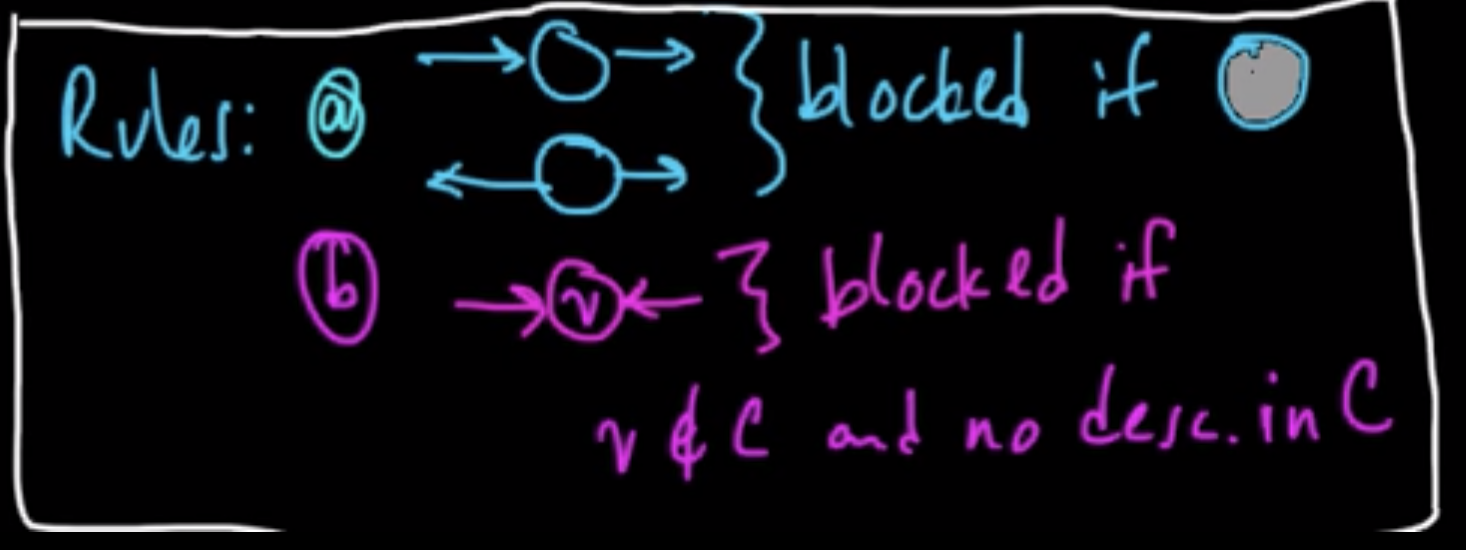 Rules: ⓐ → ◯ → } blocked if
← ◯ →
ⓑ → ⓥ ← } blocked if
v ∉ C and no desc. in C